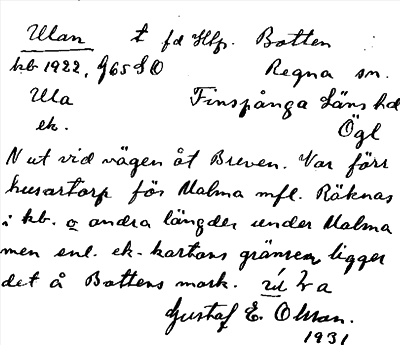 Ulan t fd Hlp. Botten
kb 1922, G65SO Regna sn.
Ula Finspånga Läns hd
ek. Ögl
N ut vid vägen åt Breven. Var förr
husartorp för Malma mfl. Räknas
i kb. o andra längder under Malma
men enl. ek-kartans gränser, ligger
det å Bottens mark. a
Gustaf E. Olsson.
1931